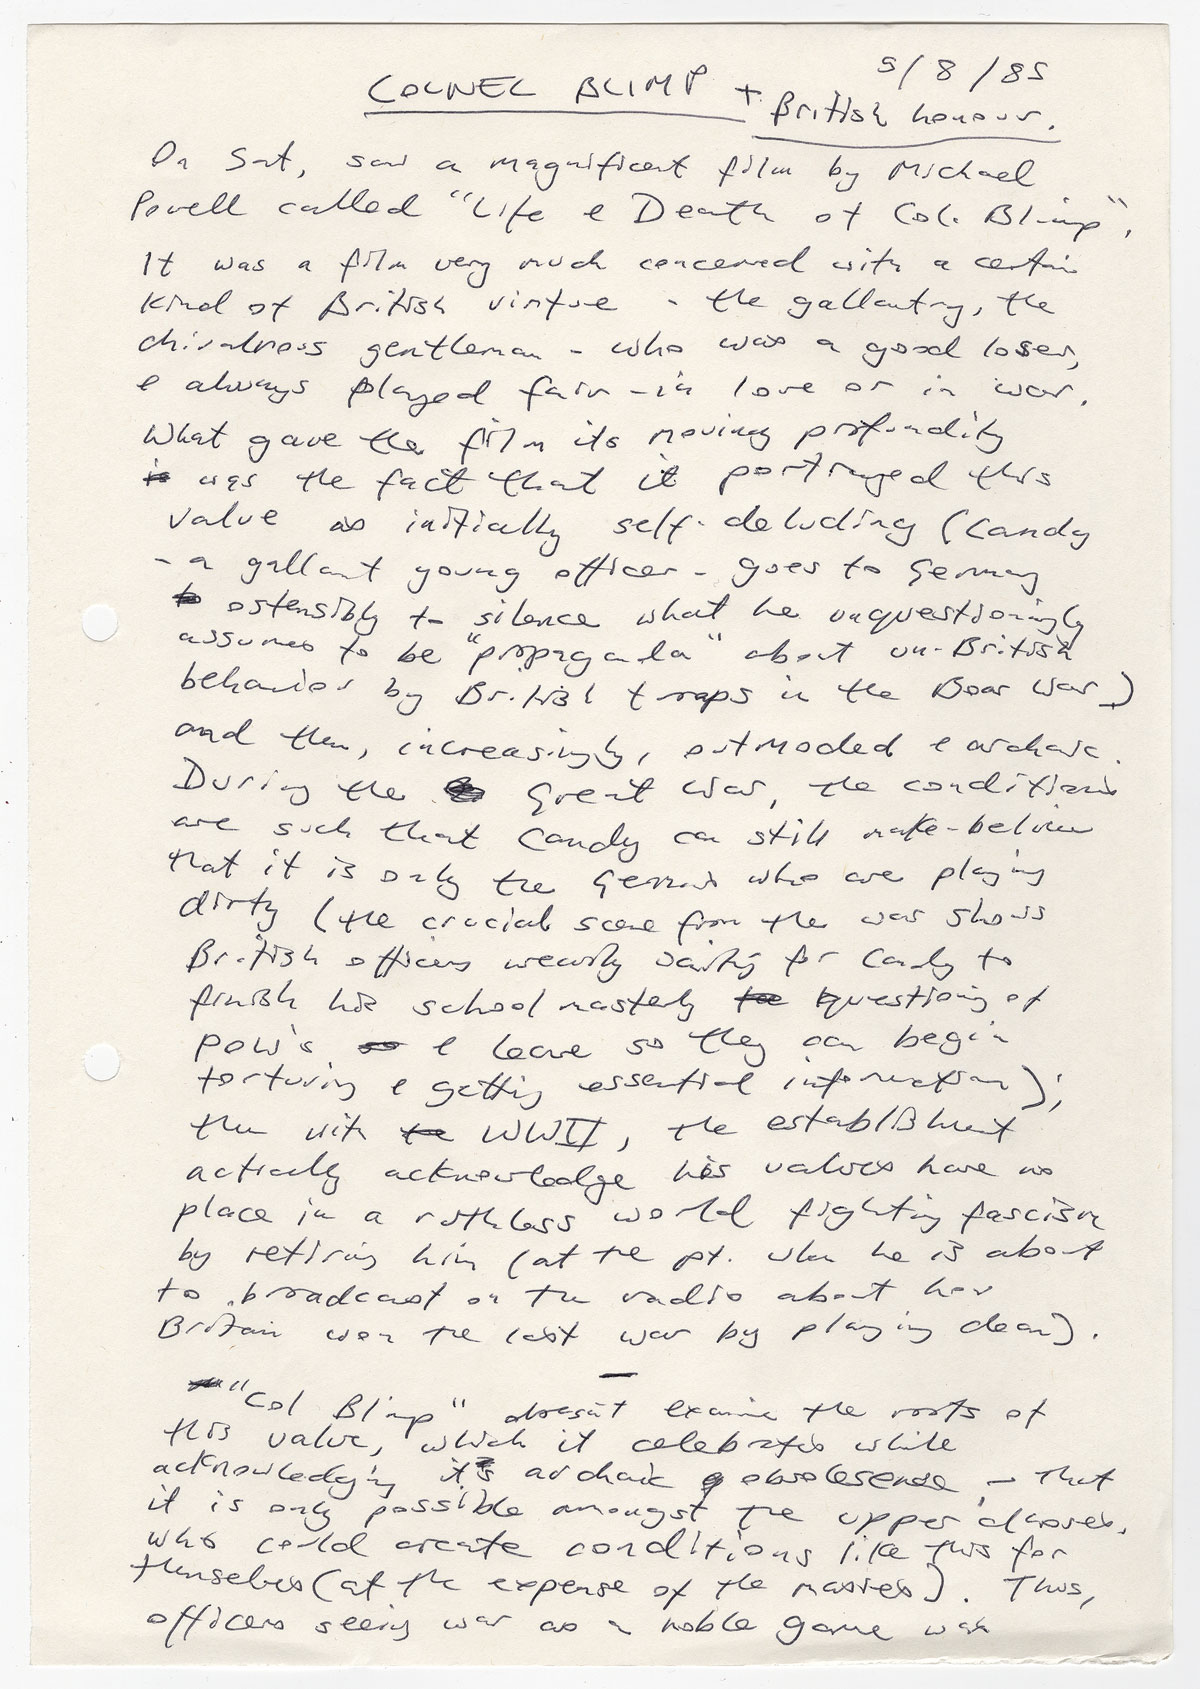 5/8/85
COLNEL BLIMP + British honour.
On Sat, saw a magnificent film by Michael
Powell called "Life & Death of Col. Blimp".
It was a film very much concerned with a certain
kind of British virtue - the gallantry, the
chivalrous gentleman - who was a good loser,
& always played fair - in love or in war.
What gave the film its moving profundity
was the fact that it portrayed this
value as initially self-deluding (Candy
- a gallant young officer - goes to Germany
ostensibly to silence what he unquestioningly
assumes to be "propaganda" about un-British
behavior by British troops in the Boar War)
and then, increasingly, outmoded & archaic.
During the Great War, the conditions
are such that Candy can still make-believe
that it is only the Germans who are playing
dirty (the crucial scene from the war shows
British officers wearily waiting for Candy to
finish his school masterly questioning of
POW's & leave so they can begin
torturing & getting essential information);
then with WWII, the establishment
actually acknowledge his values have no
place in a ruthless world fighting fascism
by retiring him (at the pt. when he is about
to broadcast on the radio about how
Britain won the last war by playing clean).
"Col Blimp" doesn't examine the roots of
this value, which it celebrates while
acknowledging its archaic obsolesense - that
it is only possible amongst the upper classes,
who could create conditions like this for
themselves (at the expense of the masses). Thus,
officers seeing war as a noble game was